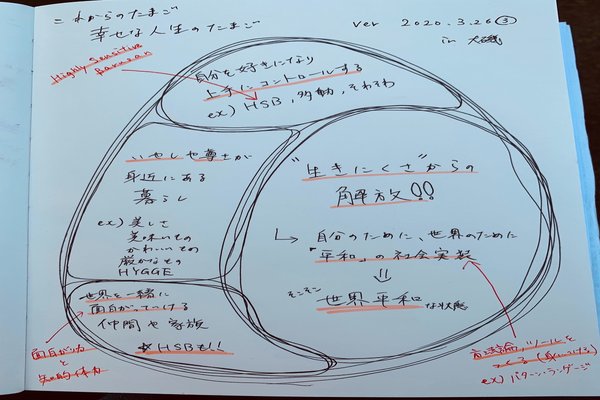 = これからのたまご
幸せな人生のたまご
ver 2020.3.26 ③
in 大磯
Highly Sensitive
自分を好きになり
上手にコントロールする
ex) HSB, 多動, それぞれ
いやしや尊士が
身近にある
暮らし
ex) 美しさ
美味いもの
かわいいもの
厳かなもの
HYGGE
"生きにくさ"からの
解放!!
↳ 自分のために、世界のために
「平和」の社会実装
⇓
そこそこ 世界平和 な状態
世界を一緒に
面白がっていける
仲間や家族
☆HSBも!!
面白がり力
と
知的体力
方法論, ツールを
つくる (身につける)
ex) パターン・ランゲージ